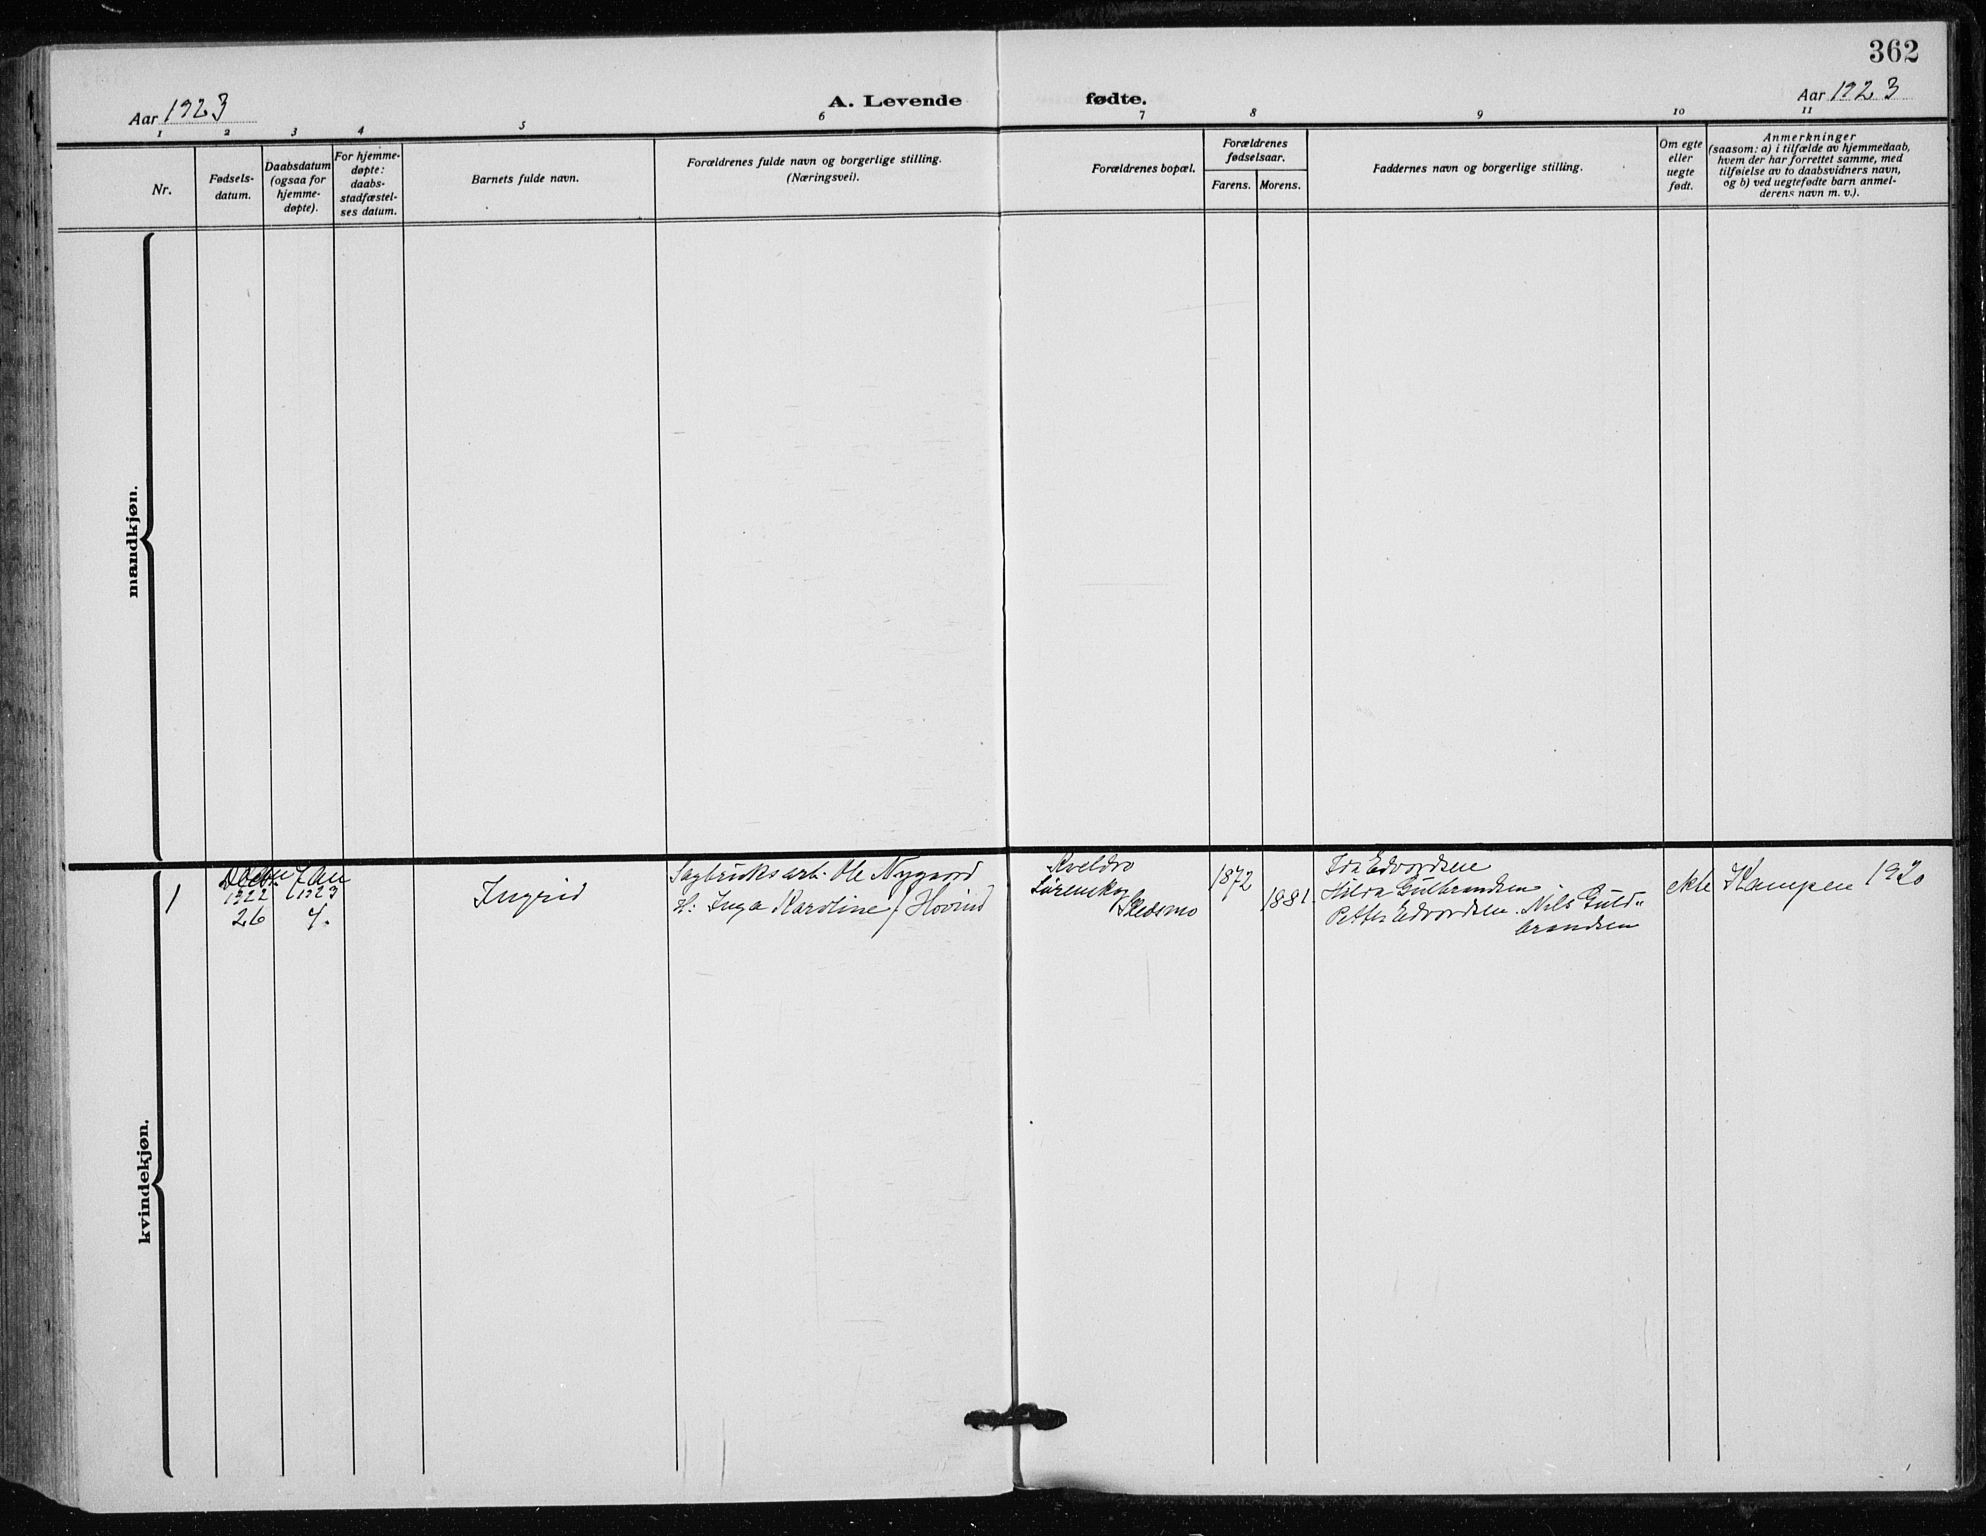 362
Aar 1923
A. Levende fødte.
Aar 1923
1 2 3 4 5 6 7 8 9 10 11
Nr.
Fødsels-
datum.
Daabsdatum
(ogsaa for
hjemme-
døpte).
For hjemme-
døpte:
daabs-
stadfæstel-
ses datum.
Barnets fulde navn.
Forældrenes fulde navn og borgerlige stilling.
(Næringsvei).
Forældrenes bopæl.
Forældrenes
fødselsaar.
Farens. Morens.
Faddernes navn og borgerlige stilling.
Om egte
eller
uegte
født.
Anmerkninger
(saasom: a) i tilfælde av hjemmedaab,
hvem der har forrettet samme, med
tilføielse av to daabsvidners navn,
og b) ved uegtefødte barn anmel-
derens navn m. v.).
mandkjøn.
kvindekjøn.
1
1922
26
Jan
1923
7.
Ingrid
Sagbruksarb. Ole Nygaard
H: Inga Karoline f. Hovind
Kveldro
Lørenskog
Skedsmo
1872
1881.
Ida Edvardsen
Hilda Gulbrandsen
Petter Edvardsen. Nils Guld-
brandsen
ekte
Kampen 1920